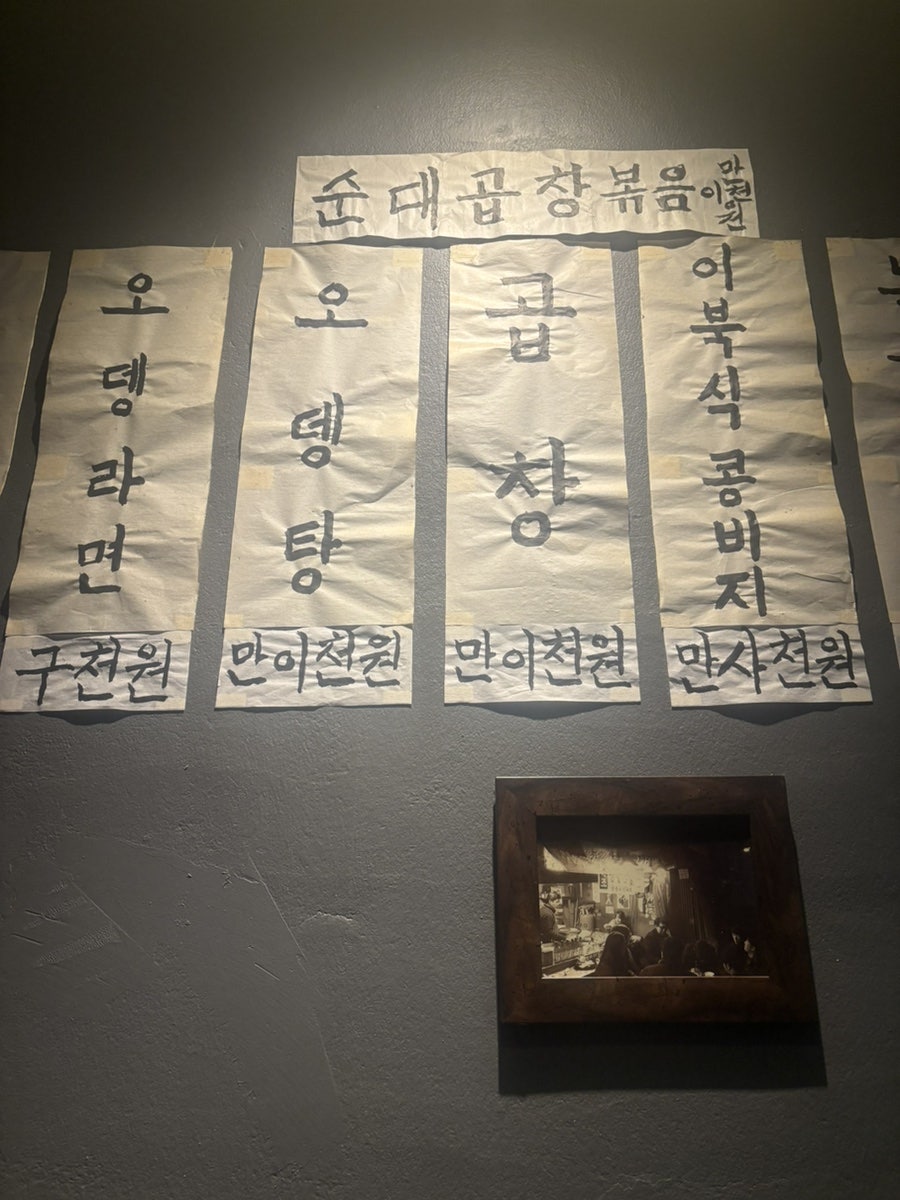 순대곱창볶음 만이천원
오뎅라면
구천원
오뎅탕
만이천원
곱창
만이천원
이북식콩비지
만사천원